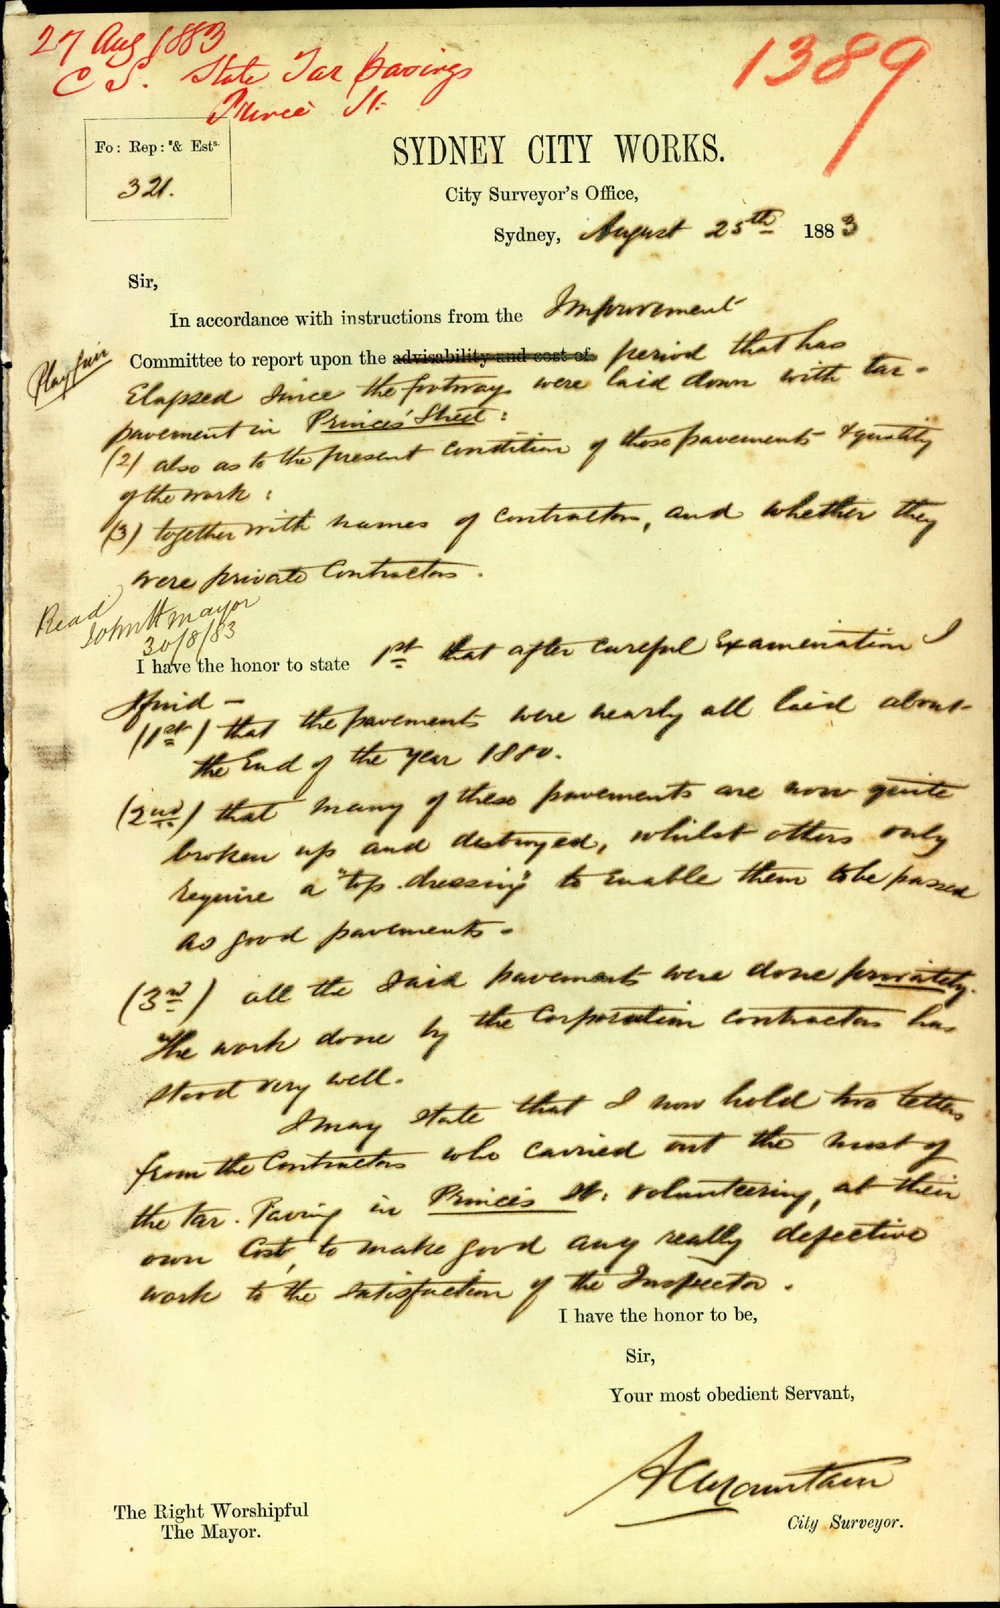 27 Aug 1883
C S. State Tar pavings
Prince St
1389
Fo: Rep: & Ests.
321.
SYDNEY CITY WORKS.
City Surveyor's Office,
Sydney, August 25th 1883
Sir,
In accordance with instructions from the Improvement
Playfair
Committee to report upon the advisability and cost of period that has
Elapsed since the footways were laid down with tar-
pavement in Princes' Street:
(2) also as to the present condition of those pavements & quality
of the work:
(3) together with names of contractors, and whether they
were private Contractors.
Read
John H mayor
30/8/83
I have the honor to state 1st that after careful Examination I
find -
(1st) that the pavements were nearly all laid about
the End of the year 1880.
(2nd) that many of these pavements are now quite
broken up and destroyed, whilst others only
require a "top dressing" to Enable them to be passed
as good pavements.
(3rd) all the said pavements were done privately.
The work done by the Corporation contractors has
stood very well.
I may state that I now hold two letters
from the Contractors who carried out the most of
the tar. Paving in Princes St: volunteering, at their
own Cost, to make good any really defective
work to the satisfaction of the Inspector.
I have the honor to be,
Sir,
Your most obedient Servant,
A C Mountain
City Surveyor.
The Right Worshipful
The Mayor.